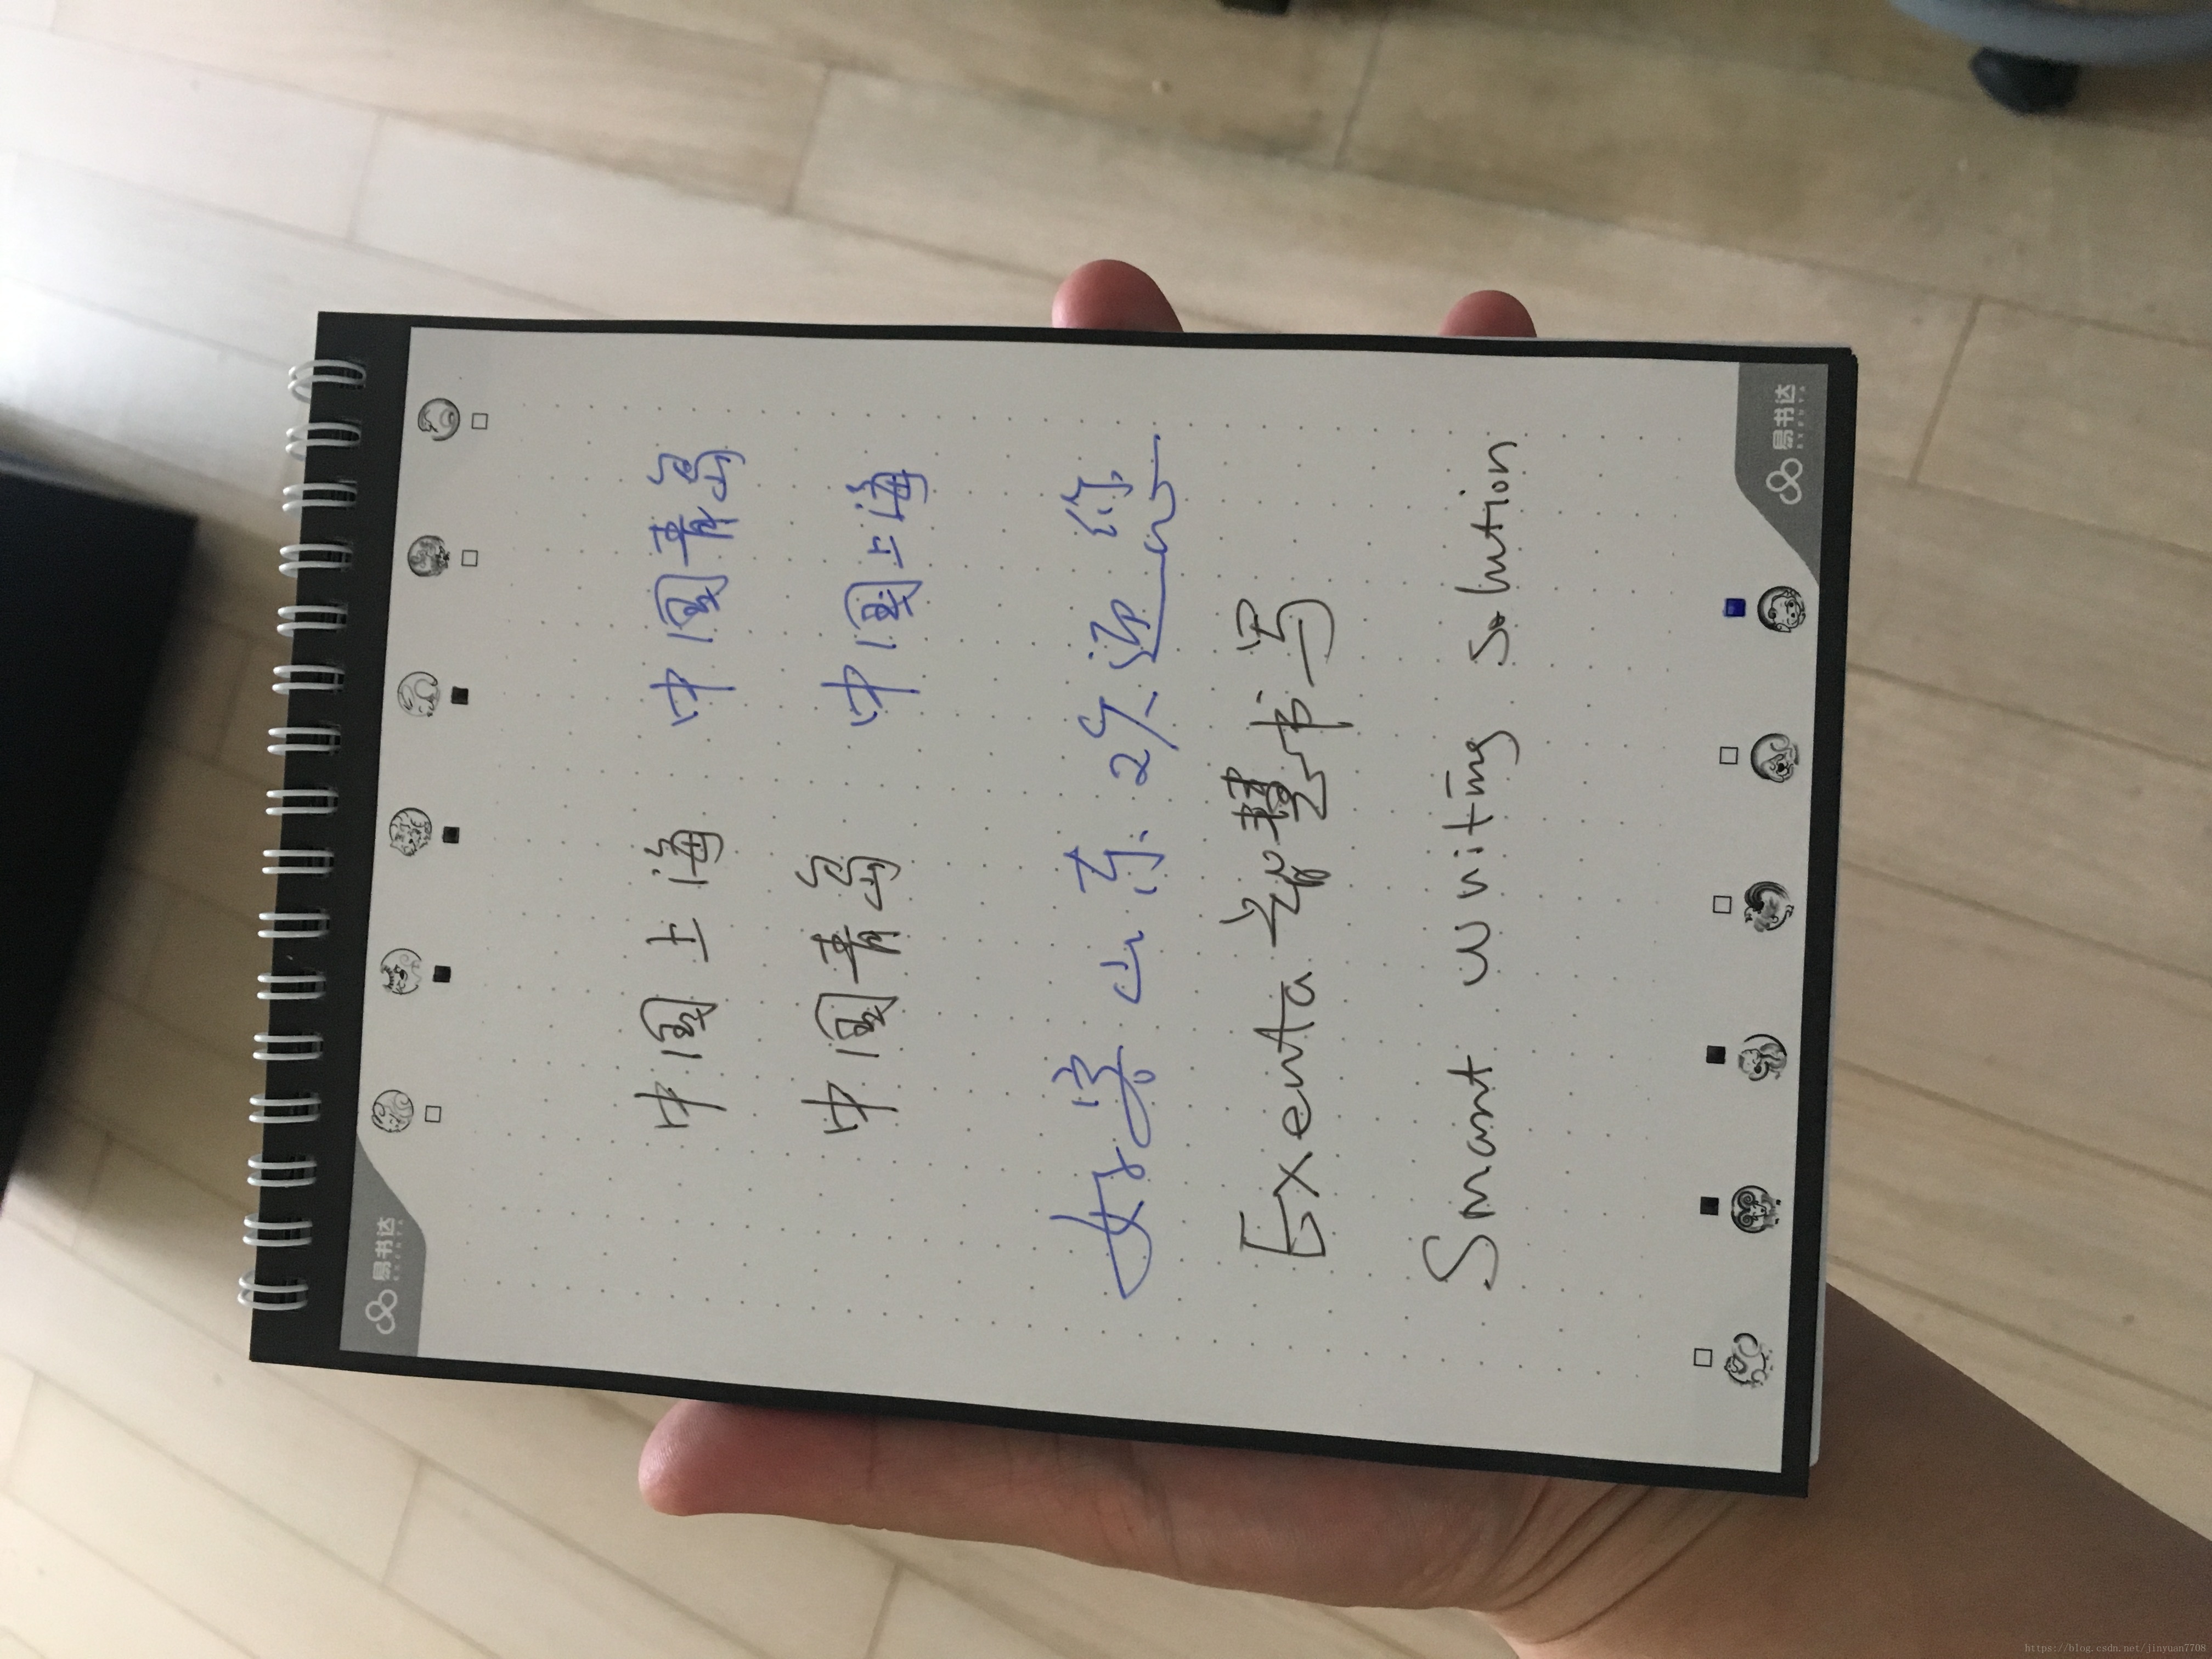 易书达
EXENTA
中国上海 中国青岛
中国青岛 中国上海
好客山东欢迎您
Exenta 智慧书写
Smart writing solution
易书达
EXENTA
https://blog.csdn.net/jinyuan7708